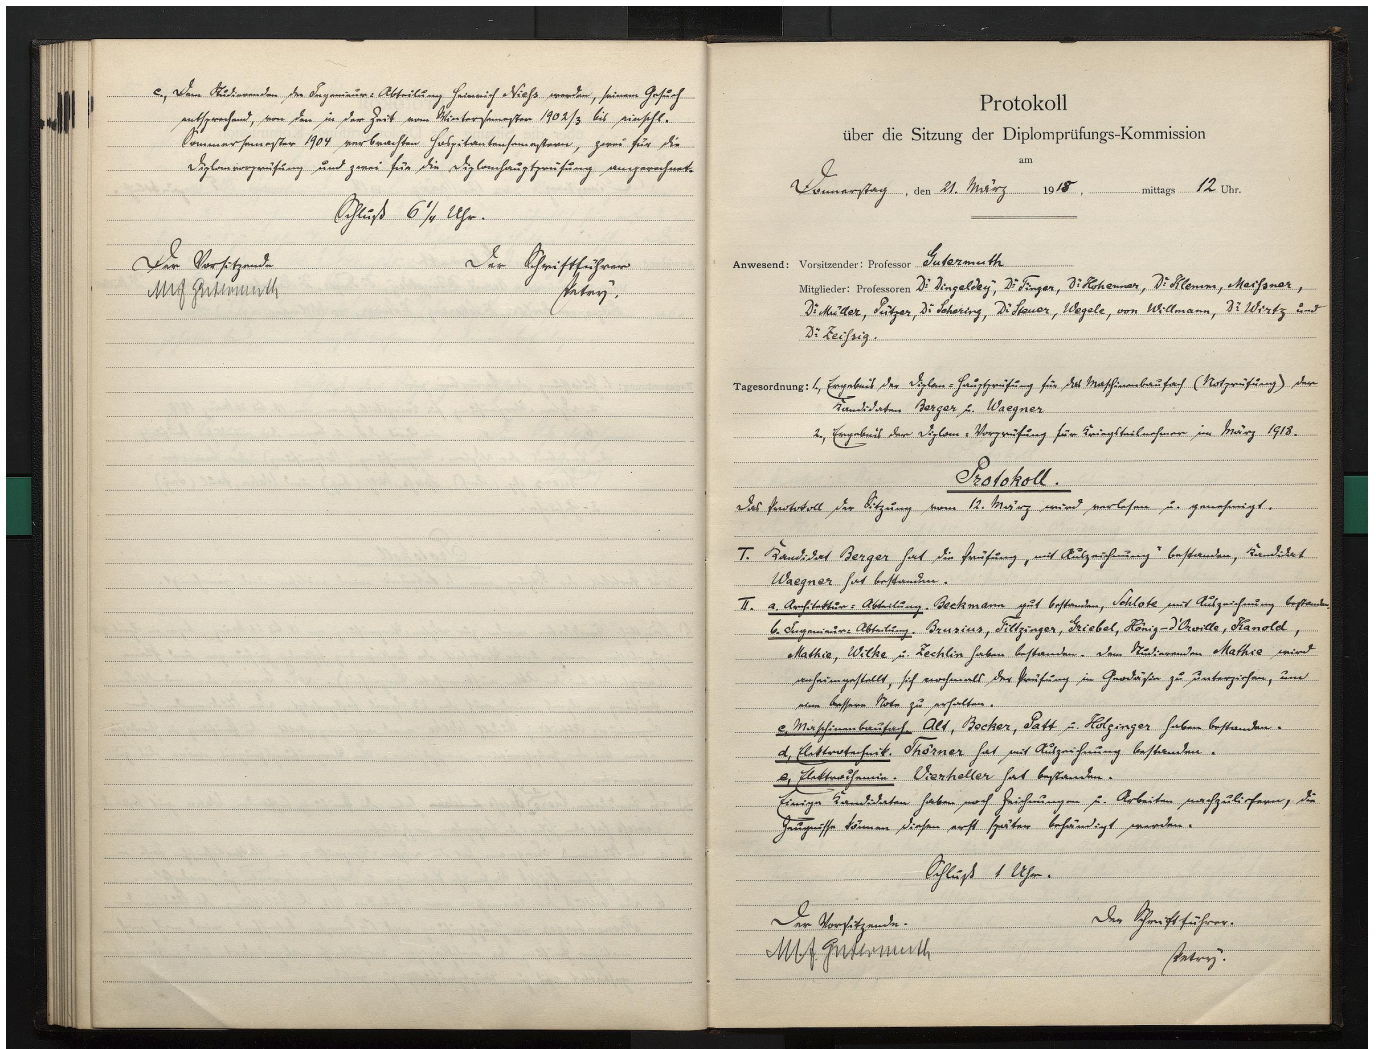 c., Dem Studierenden der Ingenieur-Abteilung Heinrich Niess werden, seinem Gesuch
entsprechend, von den in der Zeit vom Wintersemester 1902/3 bis einschl.
Sommersemester 1904 verbrachten Hospitantensemestern, zwei für die
Diplomvorprüfung und zwei für die Diplomhauptprüfung angerechnet.
Schluß 6 1/4 Uhr.
Der Vorsitzende Der Schriftführer
M.F. Gutermuth Petry.
Protokoll
über die Sitzung der Diplomprüfungs-Kommission
am
Donnerstag, den 21. März 1918. mittags 12 Uhr.
Anwesend: Vorsitzender: Professor Gutermuth
Mitglieder: Professoren Dr Dingeldey, Dr Finger, Dr Hohenner, Dr Klemm, Meißner,
Dr Müller, Pützer, Dr Schering, Dr Steuer, Wegele, von Willmann, Dr Wirtz und
Dr Zeißig.
Tagesordnung: 1., Ergebnis der Diplom-Hauptprüfung für das Maschinenbaufach (Notprüfung) der
Kandidaten Berger u. Waegner
2., Ergebnis der Diplom-Vorprüfung für Kriegsteilnehmer im März 1918.
Protokoll.
Das Protokoll der Sitzung vom 12. März wird verlesen u. genehmigt.
I. Kandidat Berger hat die Prüfung „mit Auszeichnung" bestanden, Kandidat
Waegner hat bestanden.
II. a. Architektur-Abteilung. Beckmann gut bestanden, Schlote mit Auszeichnung bestanden
b. Ingenieur-Abteilung. Brusius, Filtzinger, Griebel, König-d'Orville, Kanold,
Mathie, Wilke u. Zechlin haben bestanden. Dem Studierenden Mathie wird
anheimgestellt, sich nochmals der Prüfung in Geodäsie zu unterziehen, um
eine bessere Note zu erhalten.
c, Maschinenbaufach. Alt, Becker, Patt u. Holzinger haben bestanden.
d, Elektrotechnik. Thörner hat mit Auszeichnung bestanden.
e, Elektrochemie. Vierheller hat bestanden.
Einige Kandidaten haben noch Zeichnungen u. Arbeiten nachzuliefern, die
Zeugnisse können diesen erst später behändigt werden.
Schluß 1 Uhr.
Der Vorsitzende. Der Schriftführer.
M.F. Gutermuth Petry.